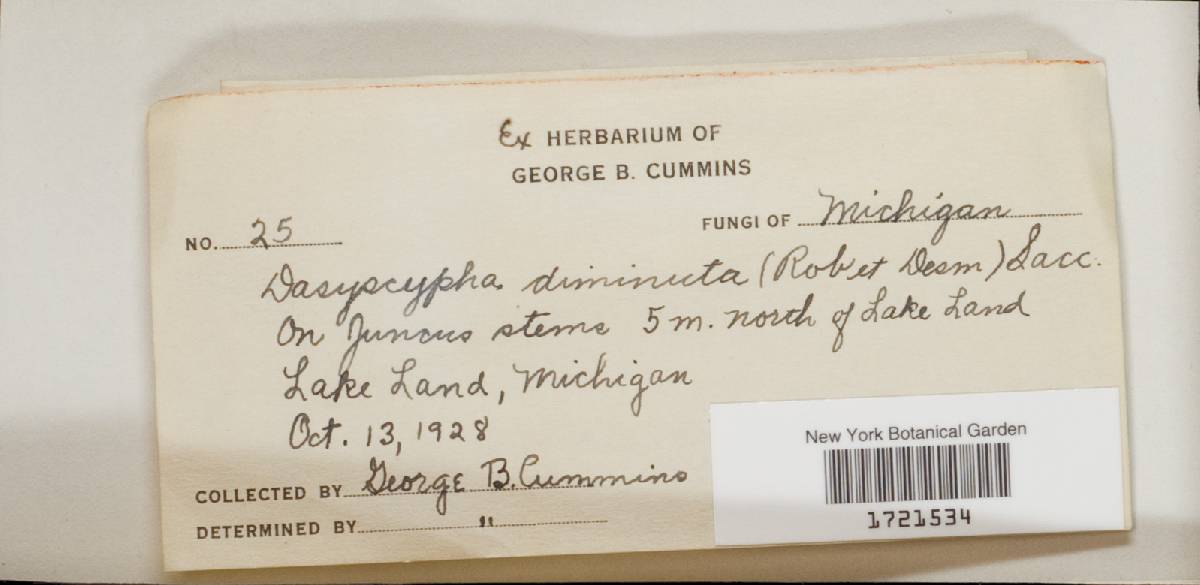 Ex HERBARIUM OF
GEORGE B. CUMMINS
NO. 25
FUNGI OF Michigan
Dasyscypha diminuta (Rob et Desm) Sacc.
On Juncus stems 5 m. north of Lake Land
Lake Land, Michigan
Oct. 13, 1928
COLLECTED BY George B. Cummins
DETERMINED BY "
New York Botanical Garden
1721534